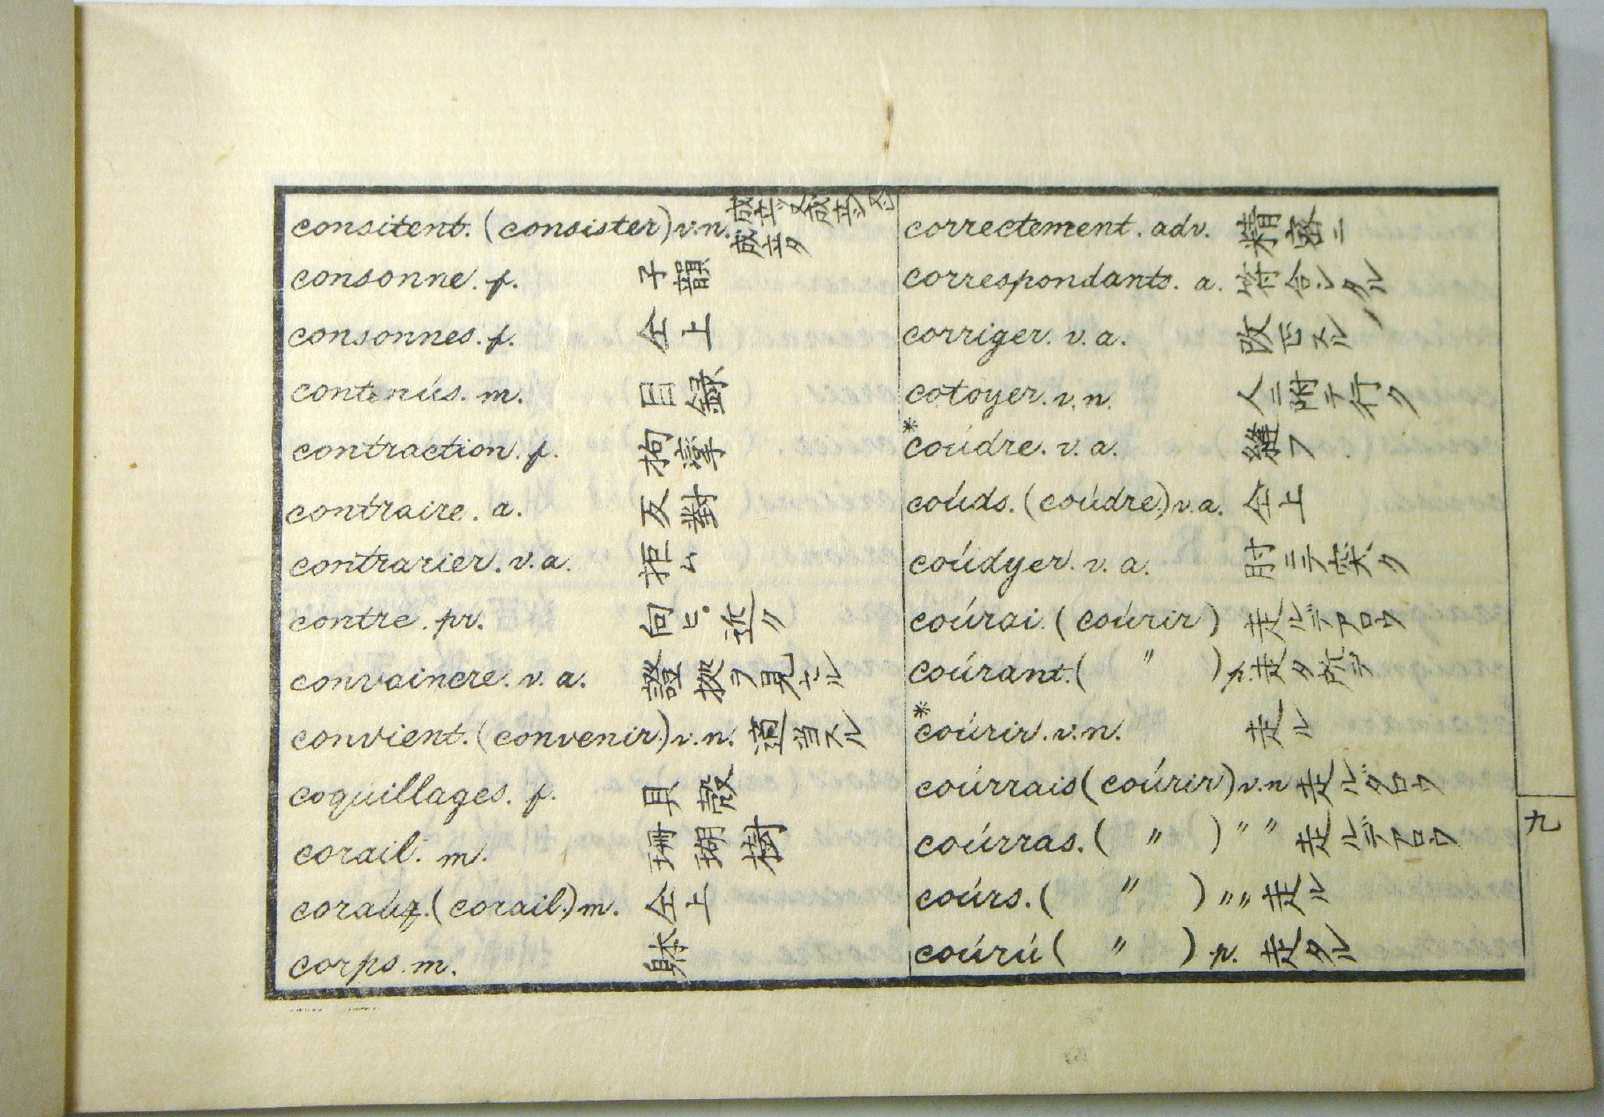 consitent. (consister) v.n. 成立ツ又成立
成立タ
consonne. f. 子韻
consonnes. f. 仝上
contenús. m. 目録
contraction. f. 拘攣
contraire. a. 反對
contrarier. v. a. 拒ム
contre. pr. 向ヒ. 近ク
convaincre. v. a. 證拠ヲ見セル
convient. (convenir) v. n. 適当スル
coquillages. f. 貝殻
corail. m. 珊瑚樹
coraúx. (corail.) m. 仝上
corps. m. 躰
correctement. adv. 精密ニ
correspondants. a. 附合シタル
corriger. v. a. 改正スル
cotoyer. v. n. 人ニ附テ行ク
*coúdre. v. a. 縫フ
coúds. (coúdre.) v. a. 仝上
coúdyer. v. a. 肘ニテ突ク
coúrai. (coúrir) 走ルデアロウ
coúrant. ( 〃 ) p. 走タ所デ
*coúrir. v. n. 走ル
coúrrais (coúrir) v. n 走ルダロウ
coúrras. ( 〃 ) 〃 〃 走ルデアロウ
coúrs. ( 〃 ) 〃 〃 走ル
coúrú ( 〃 ) p. 走タル
九